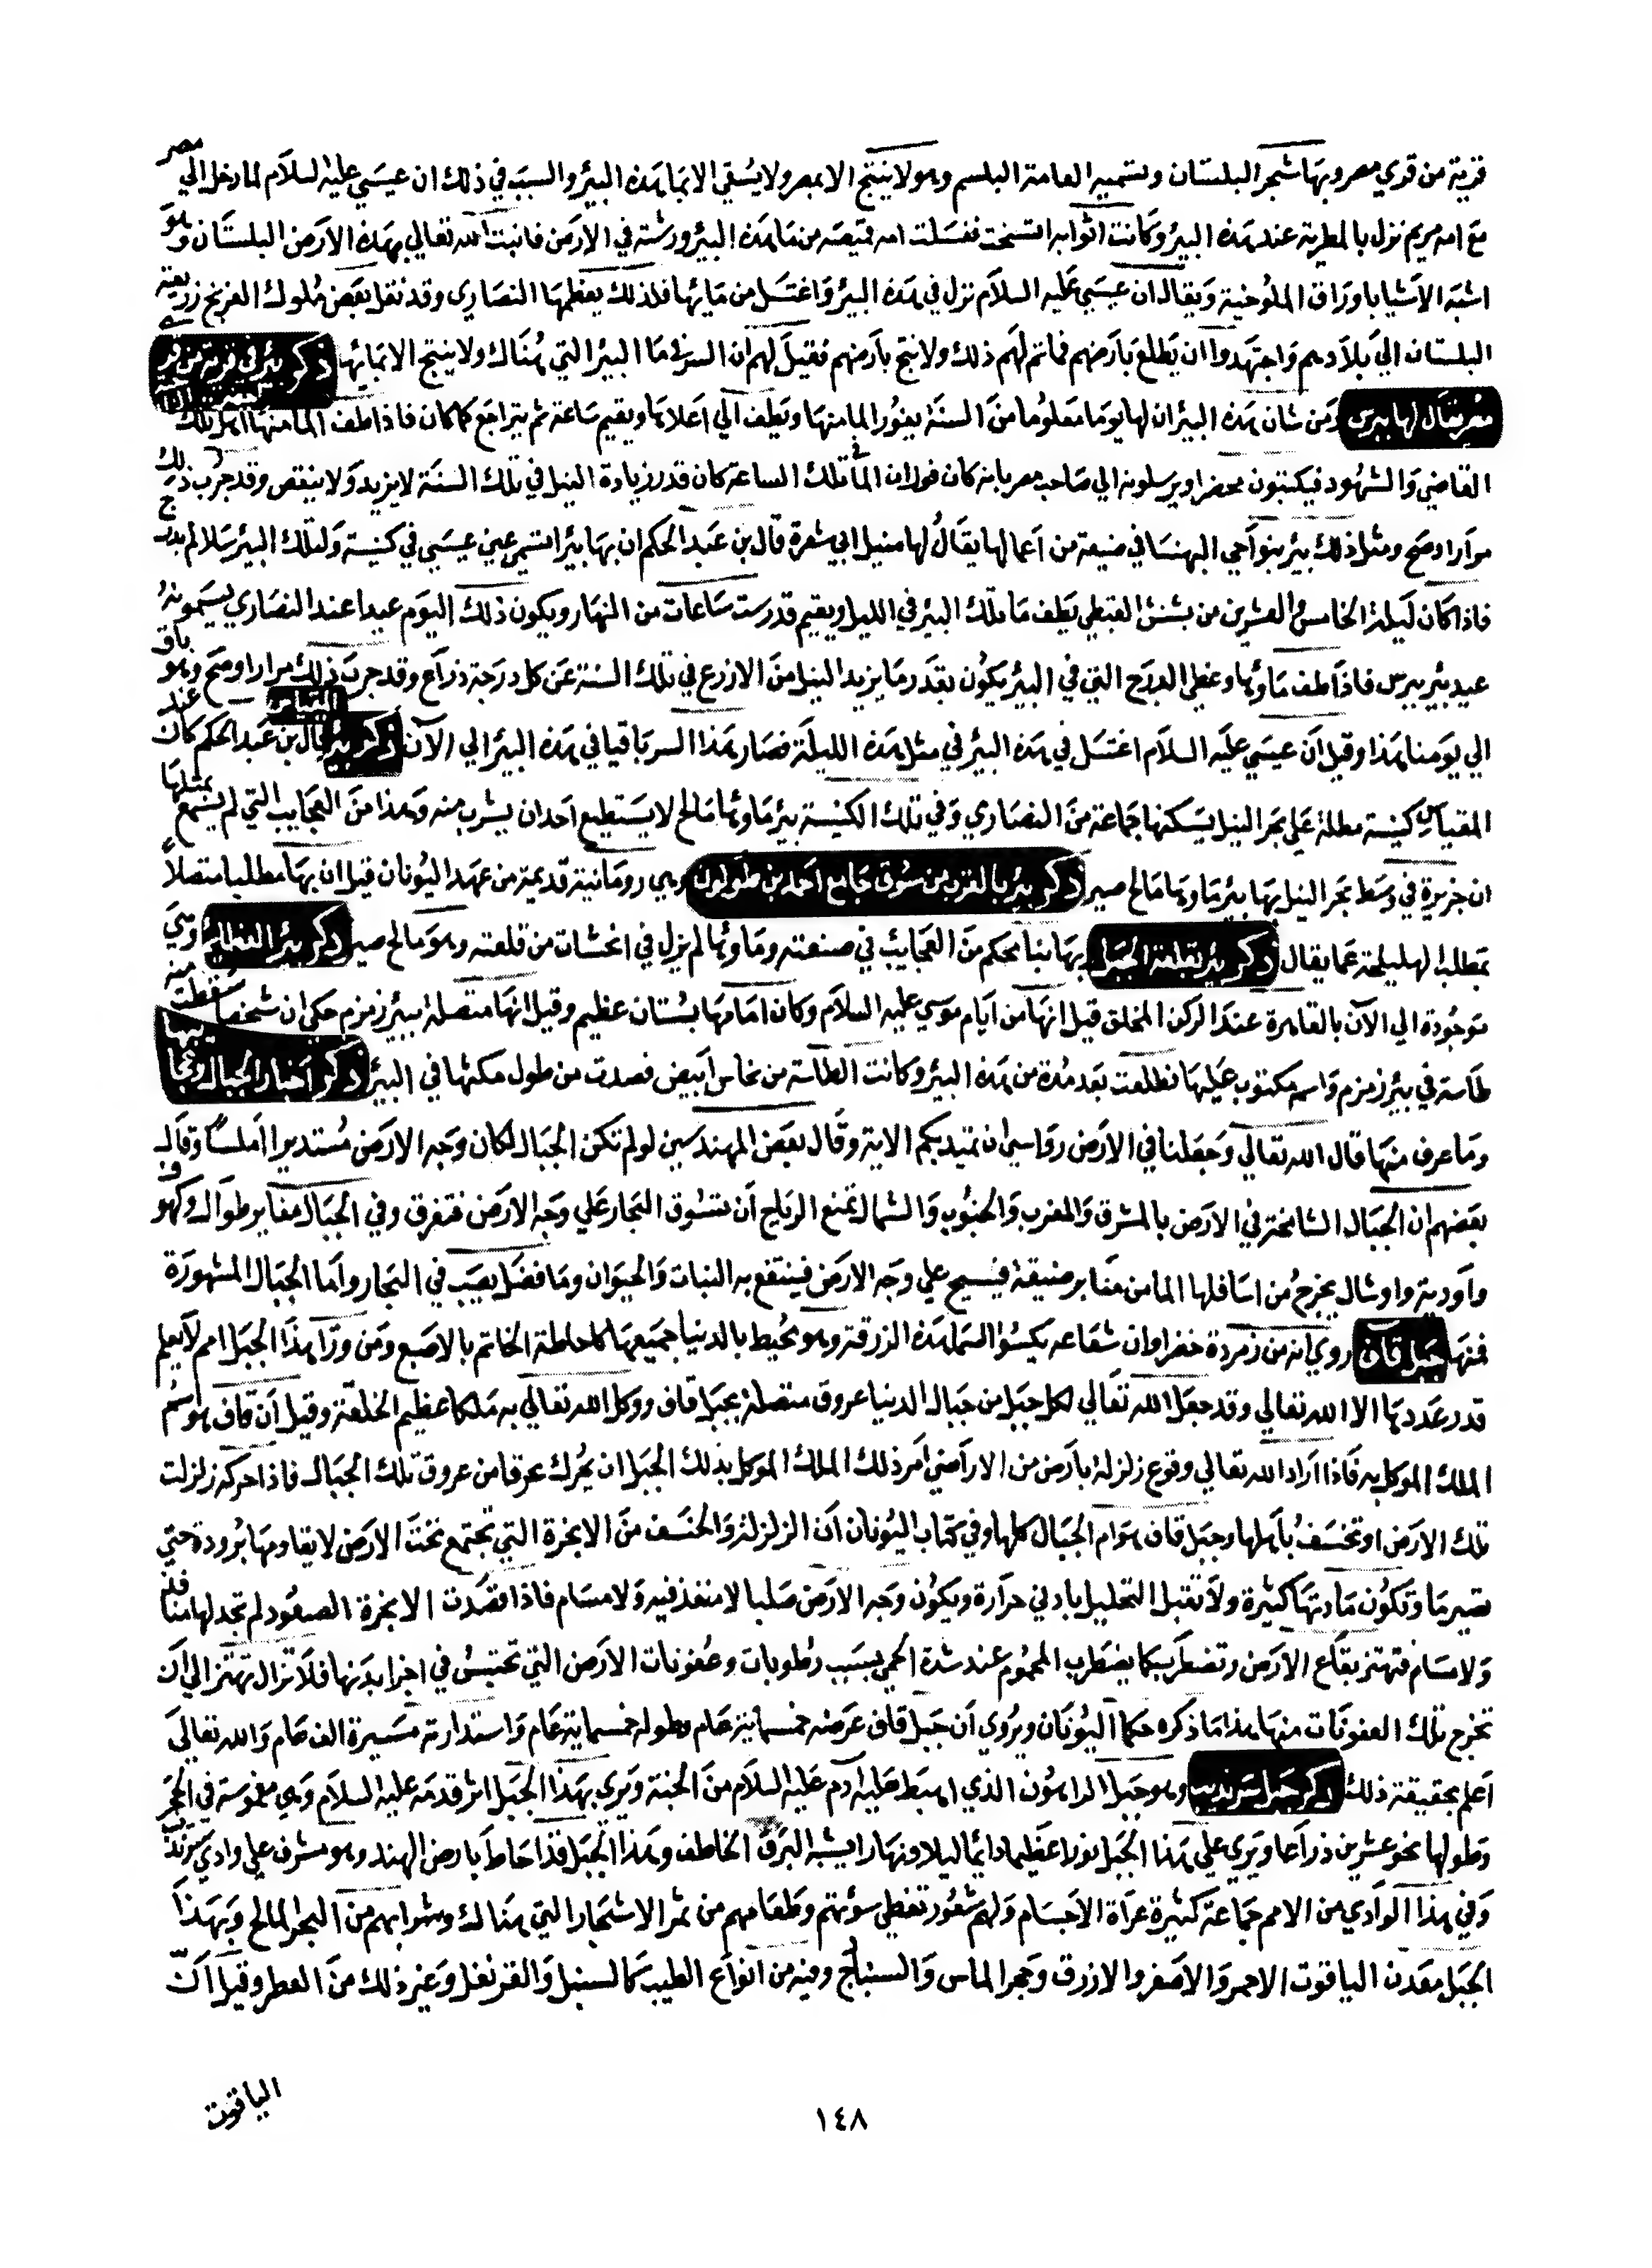 قرية من قري مصر وبها شجر البلستان وتسميه العامة البلسم وهو لا ينتج الا بمصر ولا يسقي الا بما هذه البير والسبب في ذلك ان عيسي عليه السلام لما دخل الي مصر
مع امه مريم نزل بالمطرية عند هذه البير وكانت اثوابه اتسخت فغسلت امه قميصه من ما هذه البير ورشته في الارض فانبت الله تعالي بهذه الارض البلستان وهو
اشبه الاشيا باوراق الملوخية ويقال ان عيسي عليه السلام نزل في هذه البير واغتسل من مايها فلذلك يعظمها النصاري وقد نقل بعض ملوك الفرنج زريعة
البلستان الي بلادهم واجتهدوا ان يطلع بارضهم فما تم لهم ذلك ولا نتج بارضهم فقيل لهم ان السر في ما البير التي هناك ولا ينتج الا بمايها ذكر بير في قرية من قري
مصر يقال لها بيرس ومن شان هذه البير ان لها يوما معلوما من السنة يفور الما منها ويطف الي اعلاها ويقيم ساعة ثم يتراجع كما كان فاذا طف الما منها اهل تلك
القاضي والشهود فيكتبون محضرا ويرسلونه الي صاحب مصر بانه كان فوران الما في تلك الساعة كان قدر زيادة النيل في تلك السنة لا يزيد ولا ينقص وقد جرب ذلك
مرارا وصح ومثل ذلك بير بنواحي البهنسا في ضيعة من اعمالها يقال لها منيل ابي شعرة قال بن عبد الحكم ان بها بيرا تسمي عين عيسي في كنيسة ولتلك البير سلالم بدرج
فاذا كان ليلة الخامس والعشرين من بشنش القبطي يطف ما تلك البير في الليل ويقيم قدر ست ساعات من النهار ويكون ذلك اليوم عيدا عند النصاري يسمونه
عيد بير بيرس فاذا طف ماوها وغطي الدرج التي في البير يكون بقدر ما يزيد النيل من الازرع في تلك السنة عن كل درجة ذراع وقد جرب ذلك مرارا وصح وهو باق
الي يومنا هذا وقيل ان عيسي عليه السلام اغتسل في هذه البير في مثل هذه الليلة فصار هذا السر باقيا في هذه البير الي الآن ذكر بير المقياس قال بن عبد الحكم كان عند
المقياس كنيسة مطلة علي بحر النيل يسكنها جماعة من النصاري وفي تلك الكنيسة بير ماوها مالح لا يستطيع احد ان يشرب منه وهذا من العجايب التي لم يسمع بمثلها
ان جزيرة في وسط بحر النيل بها بير ماوها مالح صير ذكر بير بالقرب من سوق جامع احمد بن طولون وهي رومانية قديمة من عهد اليونان قيل ان بها مطلبا متصلا
بمطلب الهليلجة عما يقال ذكر بير بقلعة الجبل بها بنا محكم من العجايب في صنعته وماوها لم يزل في انخشات من قلعته وهو مالح صير ذكر بير العظام وهي
موجودة الي الآن بالقاهرة عند الركن المخلق قيل انها من ايام موسي عليه السلام وكان امامها بستان عظيم وقيل انها متصلة ببير زمزم حكي ان شخصا سقطت منه
طاسة في بير زمزم واسمه مكتوب عليها فطلعت بعد مدة من هذه البير وكانت الطاسة من نحاس ابيض فصدت من طول مكثها في البير ذكر اخبار الجبال وعجايبها
وما عرف منها قال الله تعالي وجعلنا في الارض رواسي ان تميد بكم الاية وقال بعض المهندسين لو لم تكن الجبال لكان وجه الارض مستديرا املسا وقال
بعضهم ان الجبال الشامخة في الارض بالمشرق والمغرب والجنوب والشمال تمنع الرياح أن تسوق البحار علي وجه الارض فتغرق وفي الجبال مغاير طوال وكهوف
واودية واوشال يخرج من اسافلها الما من مغاير ضيقة فيسيح علي وجه الارض فينتفع به النبات والحيوان وما فضل يصب في البحار واما الجبال المشهورة
فمنها جبل قاف روي انه من زمردة خضرا وان شعاعه يكسوا السما هذه الزرقة وهو محيط بالدنيا جميعها كاحاطة الخاتم بالاصبع ومن ورا هذا الجبل امم لا يعلم
قدر عددها الا الله تعالي وقد جعل الله تعالي لكل جبل من جبال الدنيا عروق متصلة بجبل قاف ووكل الله تعالي به ملكا عظيم الخلقة وقيل أن قاف هو اسم
الملك الموكل به فاذا اراد الله تعالي وقوع زلزلة بارض من الاراضي امر ذلك الملك الموكل بذلك الجبل ان يحرك عرقا من عروق تلك الجبال فاذا حركه زلزلت
تلك الارض او تخسف باهلها وجبل قاف هو ام الجبال كلها وفي كتاب اليونان ان الزلزلة والخسف من الابخرة التي تجتمع تحت الارض لا يقاومها برودة حتي
تصير ما وتكون مادتها كثيرة ولا تقبل التحليل بادني حرارة ويكون وجه الارض صلبا لا منفذ فيه ولا مسام فاذا قصدت الابخرة الصعود لم تجد لها منافذ
ولا مسام فتهتز بقاع الارض وتضطرب كما يضطرب المحموم عند شدة الحمي بسبب رطوبات وعفونات الارض التي تحتبس في اجزا بدنها فلا تزال تهتز الي ان
تخرج تلك العفونات منها هذا ما ذكره حكما اليونان ويروي أن جبل قاف عرضه خمسماية عام وطوله خمسماية عام واستدارته مسيرة الف عام والله تعالي
اعلم بحقيقة ذلك ذكر جبل سرنديب وهو جبل الراهون الذي اهبط عليه آدم عليه السلام من الجنة ويري بهذا الجبل اثر قدمه عليه السلام وهي مغموسة في الحجر
وطولها نحو عشرين ذراعا ويري علي هذا الجبل نورا عظيما دايما ليلا ونهارا يشبه البرق الخاطف وهذا الجبل قد احاط بارض الهند وهو مشرف علي وادي سرنديب
وفي هذا الوادي من الامم جماعة كثيرة عراة الاجسام ولهم شعور تغطي سوئتهم وطعامهم من ثمر الاشجار التي هنالك وشرابهم من البحر المالح وبهذا
الجبل معدن الياقوت الاحمر والاصفر والازرق وحجر الماس والسنباج وفيه من انواع الطيب كالسنبل والقرنفل وغير ذلك من العطر وقيل ان
الياقوت
١٤٨